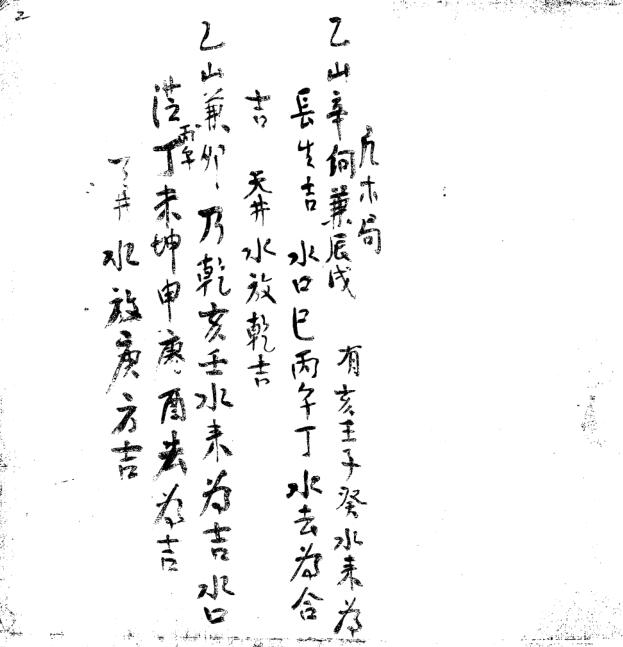 2
亢木局
乙山辛向兼辰戌 有亥壬子癸水来为
長生吉 水口巳丙午丁水去为合
吉 天井水放乾吉
乙山兼卯乃乾亥壬水来为吉水口
丙午
丁未坤申庚酉去为吉
井水放庚方吉